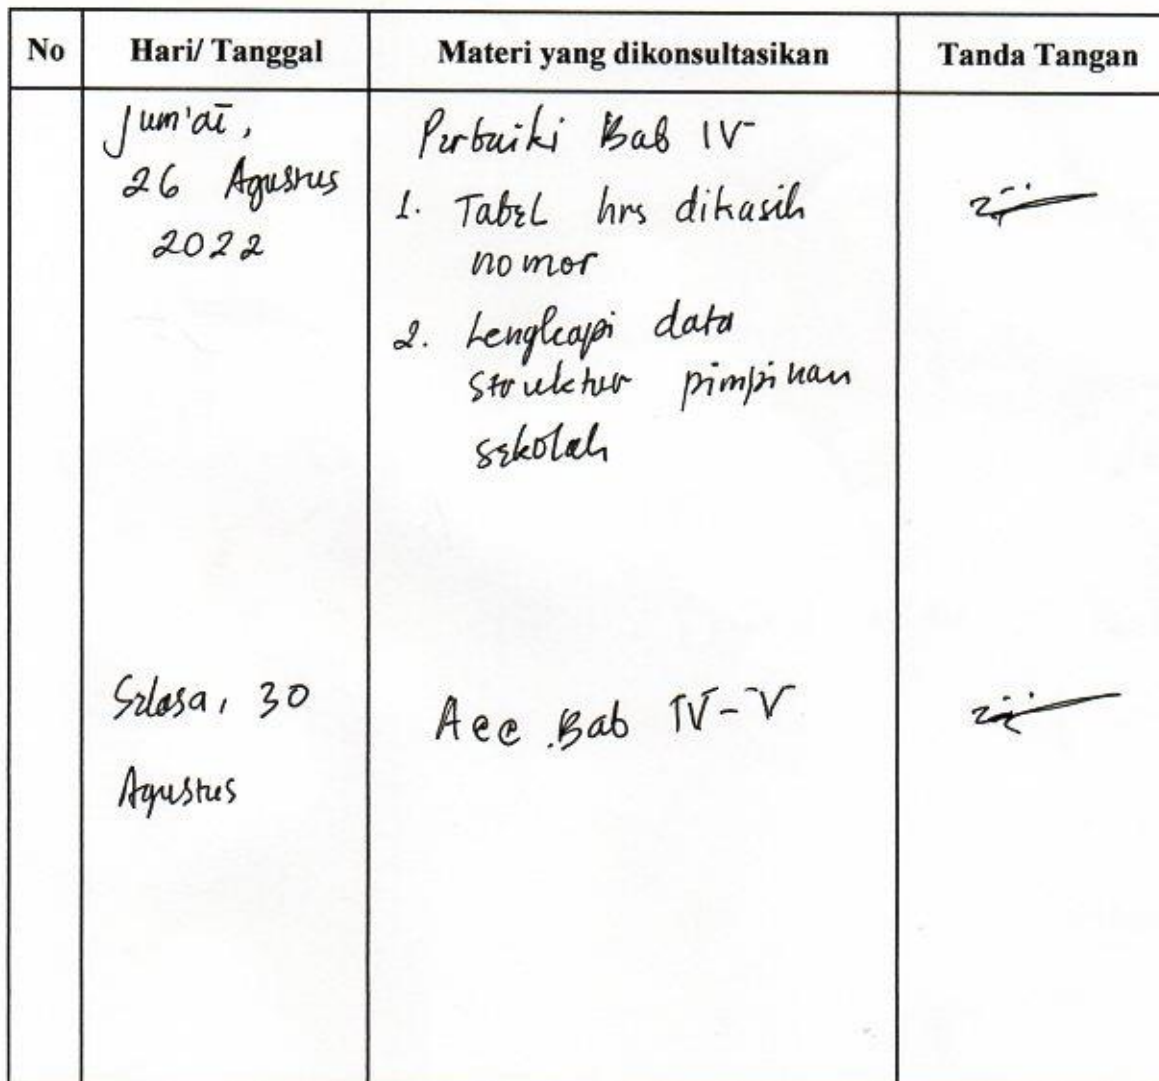 No Hari/ Tanggal Materi yang dikonsultasikan Tanda Tangan
Jum'at,
26 Agustus
2022
Perbaiki Bab IV
1. Tabel hrs dikasih
nomor
2. Lengkapi data
struktur pimpinan
sekolah
Selasa, 30
Agustus
Acc Bab IV-V